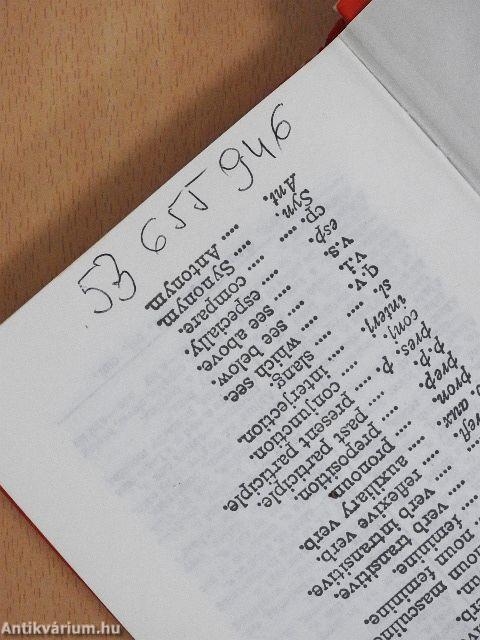 noun masculine.
noun feminine.
.... verb transitive.
.... verb intransitive.
refl. .... reflexive verb.
aux. .... auxiliary verb.
pron. .... pronoun.
prep. .... preposition.
p. p. .... past participle.
pres. p. present participle.
conj. .... conjunction.
interj. .... interjection.
sl. .... slang.
q.v. .... which see.
v.i. .... see below.
v.s. .... see above.
esp. .... especially.
cp. .... compare.
Syn. .... Synonym.
Ant. .... Antonym
53 655 946
Antikvárium.hu